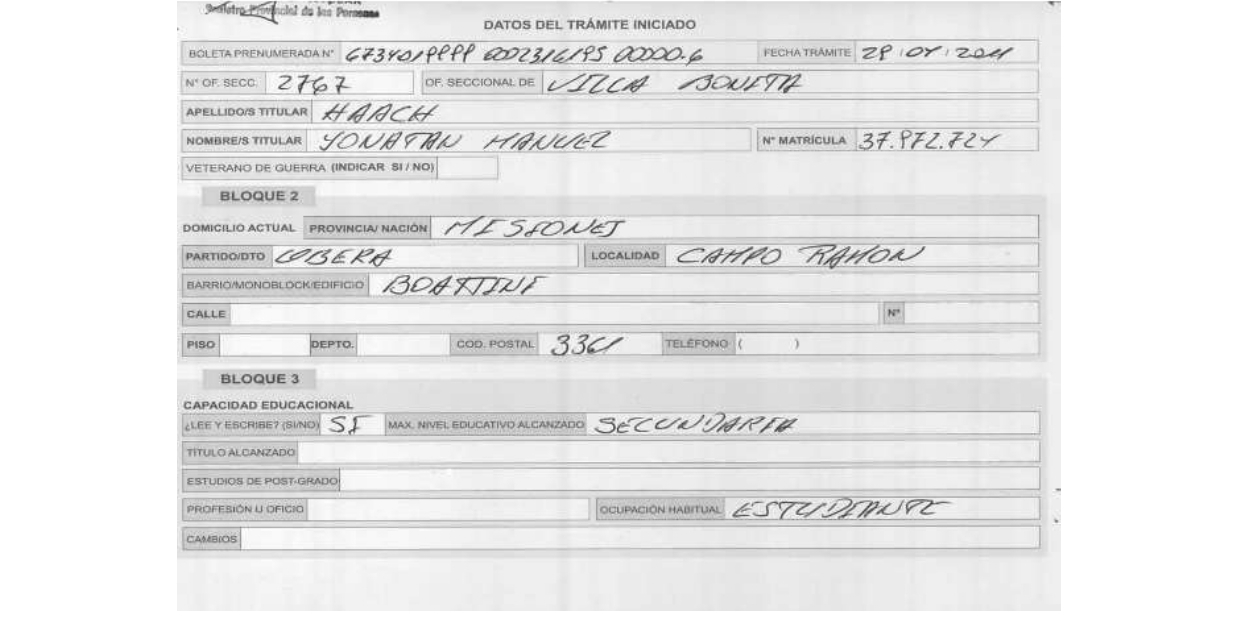 Registro Provincial de las Personas
DATOS DEL TRÁMITE INICIADO
BOLETA PRENUMERADA N° FECHA TRÁMITE
N° OF. SECC. 2767 OF. SECCIONAL DE VILLA BONITA
APELLIDO/S TITULAR HAACH
NOMBRE/S TITULAR YONATAN MANUEL N° MATRÍCULA
VETERANO DE GUERRA (INDICAR SI / NO)
BLOQUE 2
DOMICILIO ACTUAL PROVINCIA/ NACIÓN MISIONES
PARTIDO/DTO LOCALIDAD CAMPO RAMON
BARRIO/MONOBLOCK/EDIFICIO
CALLE N°
PISO DEPTO. COD. POSTAL TELÉFONO ( )
BLOQUE 3
CAPACIDAD EDUCACIONAL
¿LEE Y ESCRIBE? (SI/NO) SI MAX. NIVEL EDUCATIVO ALCANZADO SECUNDARIA
TÍTULO ALCANZADO
ESTUDIOS DE POST-GRADO
PROFESIÓN U OFICIO OCUPACIÓN HABITUAL ESTUDIANTE
CAMBIOS